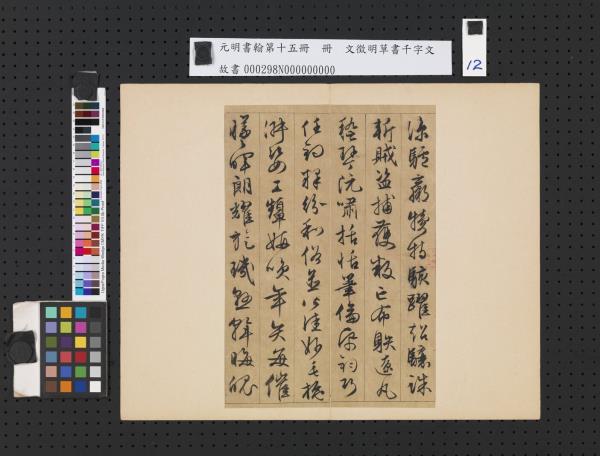 元明書翰第十五冊 冊 文徵明草書千字文
故書 000298N000000000
12
涼驢騾犢特駭躍超驤誅
斬賊盜捕獲叛亡布射遼丸
嵇琴阮嘯括恬筆倫紙鈞巧
任釣釋紛利俗並皆佳妙毛施
淑姿工顰妍咲年矢每催
曦暉朗耀旋璣懸斡晦魄